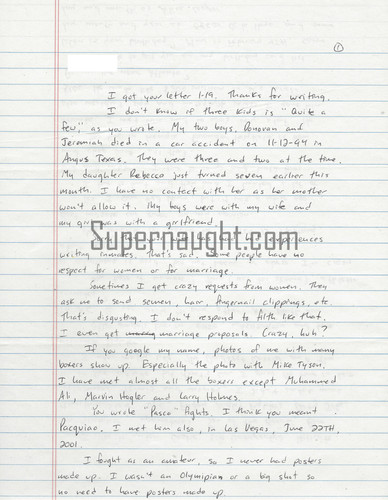 ①
I got your letter 1-19. Thanks for writing.
I don't know if three kids is "Quite a
few," as you wrote. My two boys, Donovan and
Jeremiah died in a car accident on 11-12-94 in
Angus Texas. They were three and two at the time.
My daughter Rebecca just turned seven earlier this
month. I have no contact with her as her mother
won't allow it. My boys were with my wife and
my girl was with a girlfriend.
Supernaught.com
experiences
writing inmates. That's sad. Some people have no
respect for women or for marriage.
Sometimes I get crazy requests from women. They
ask me to send semen, hair, fingernail clippings, etc.
That's disgusting. I don't respond to filth like that.
I even get marriage proposals. Crazy, huh?
If you google my name, photos of me with many
boxers show up. Especially the photo with Mike Tyson.
I have met almost all the boxers except Muhammed
Ali, Marvin Hagler and Larry Holmes.
You wrote "Pasco" fights. I think you meant
Pacquiao. I met him also, in Las Vegas, June 22TH,
2001.
I fought as an amateur, so I never had posters
made up. I wasn't an Olympian or a big shot so
no need to have posters made up.